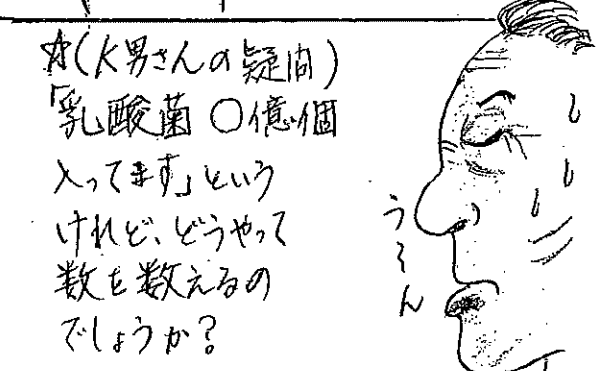 ☆(K男さんの疑問)
「乳酸菌 〇億個
入ってます」という
けれど、どうやって
数を数えるの
でしょうか？
う〜ん